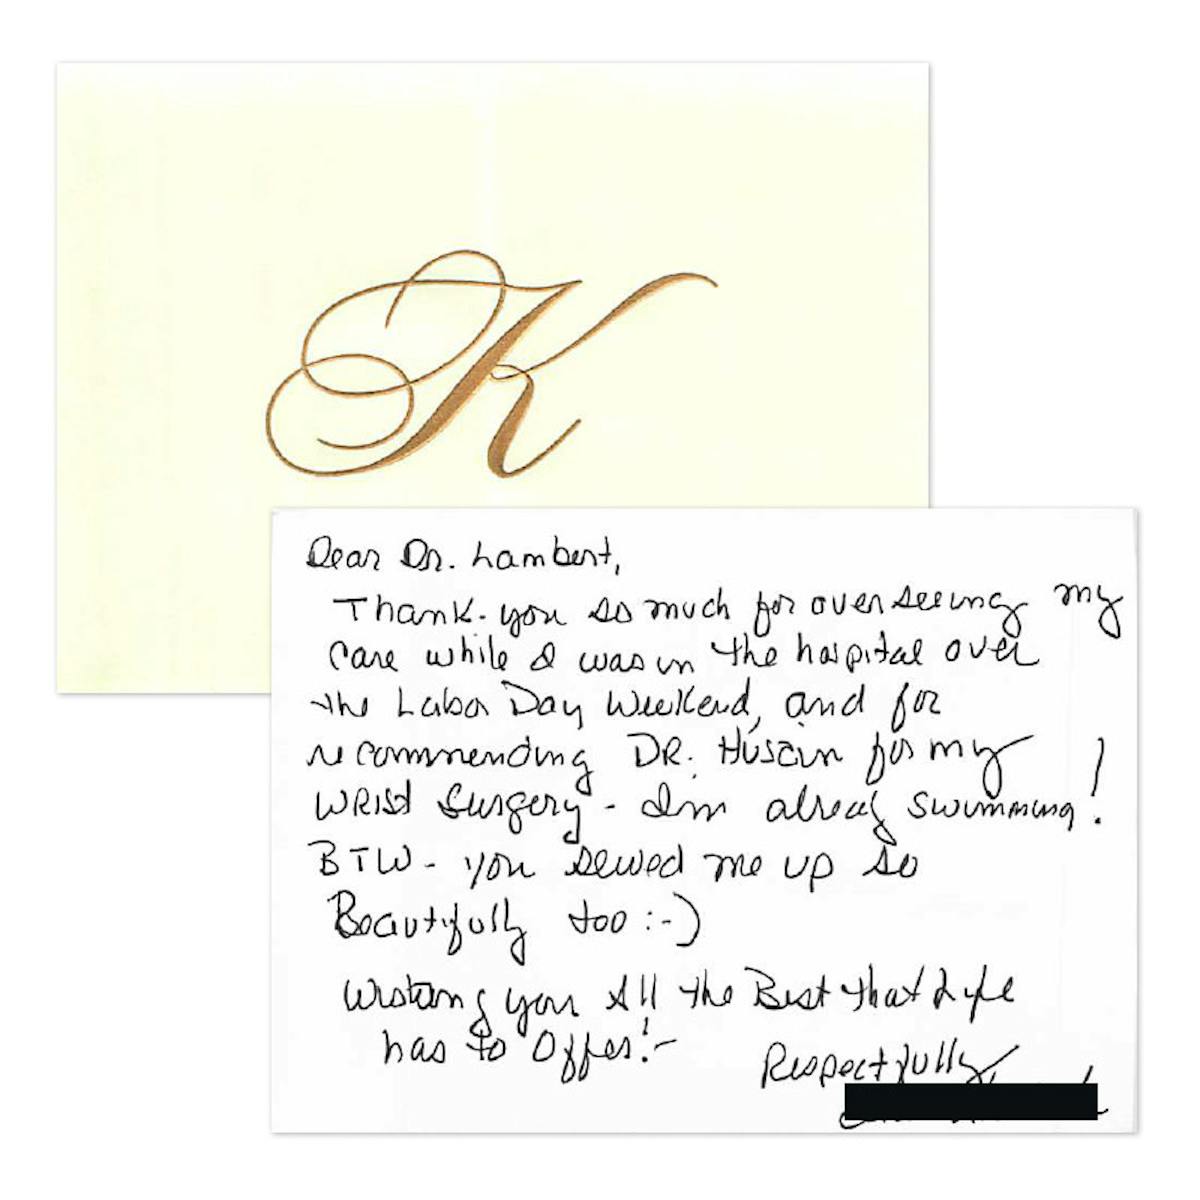 K
Dear Dr. Lambert,
Thank-you so much for overseeing my
care while I was in the hospital over
the Labor Day Weekend, and for
recommending DR. Husain for my
WRIST Surgery - I'm already swimming!
BTW - you sewed me up so
Beautifully too :-)
Wishing you All the Best that Life
has to Offer! -
Respectfully,